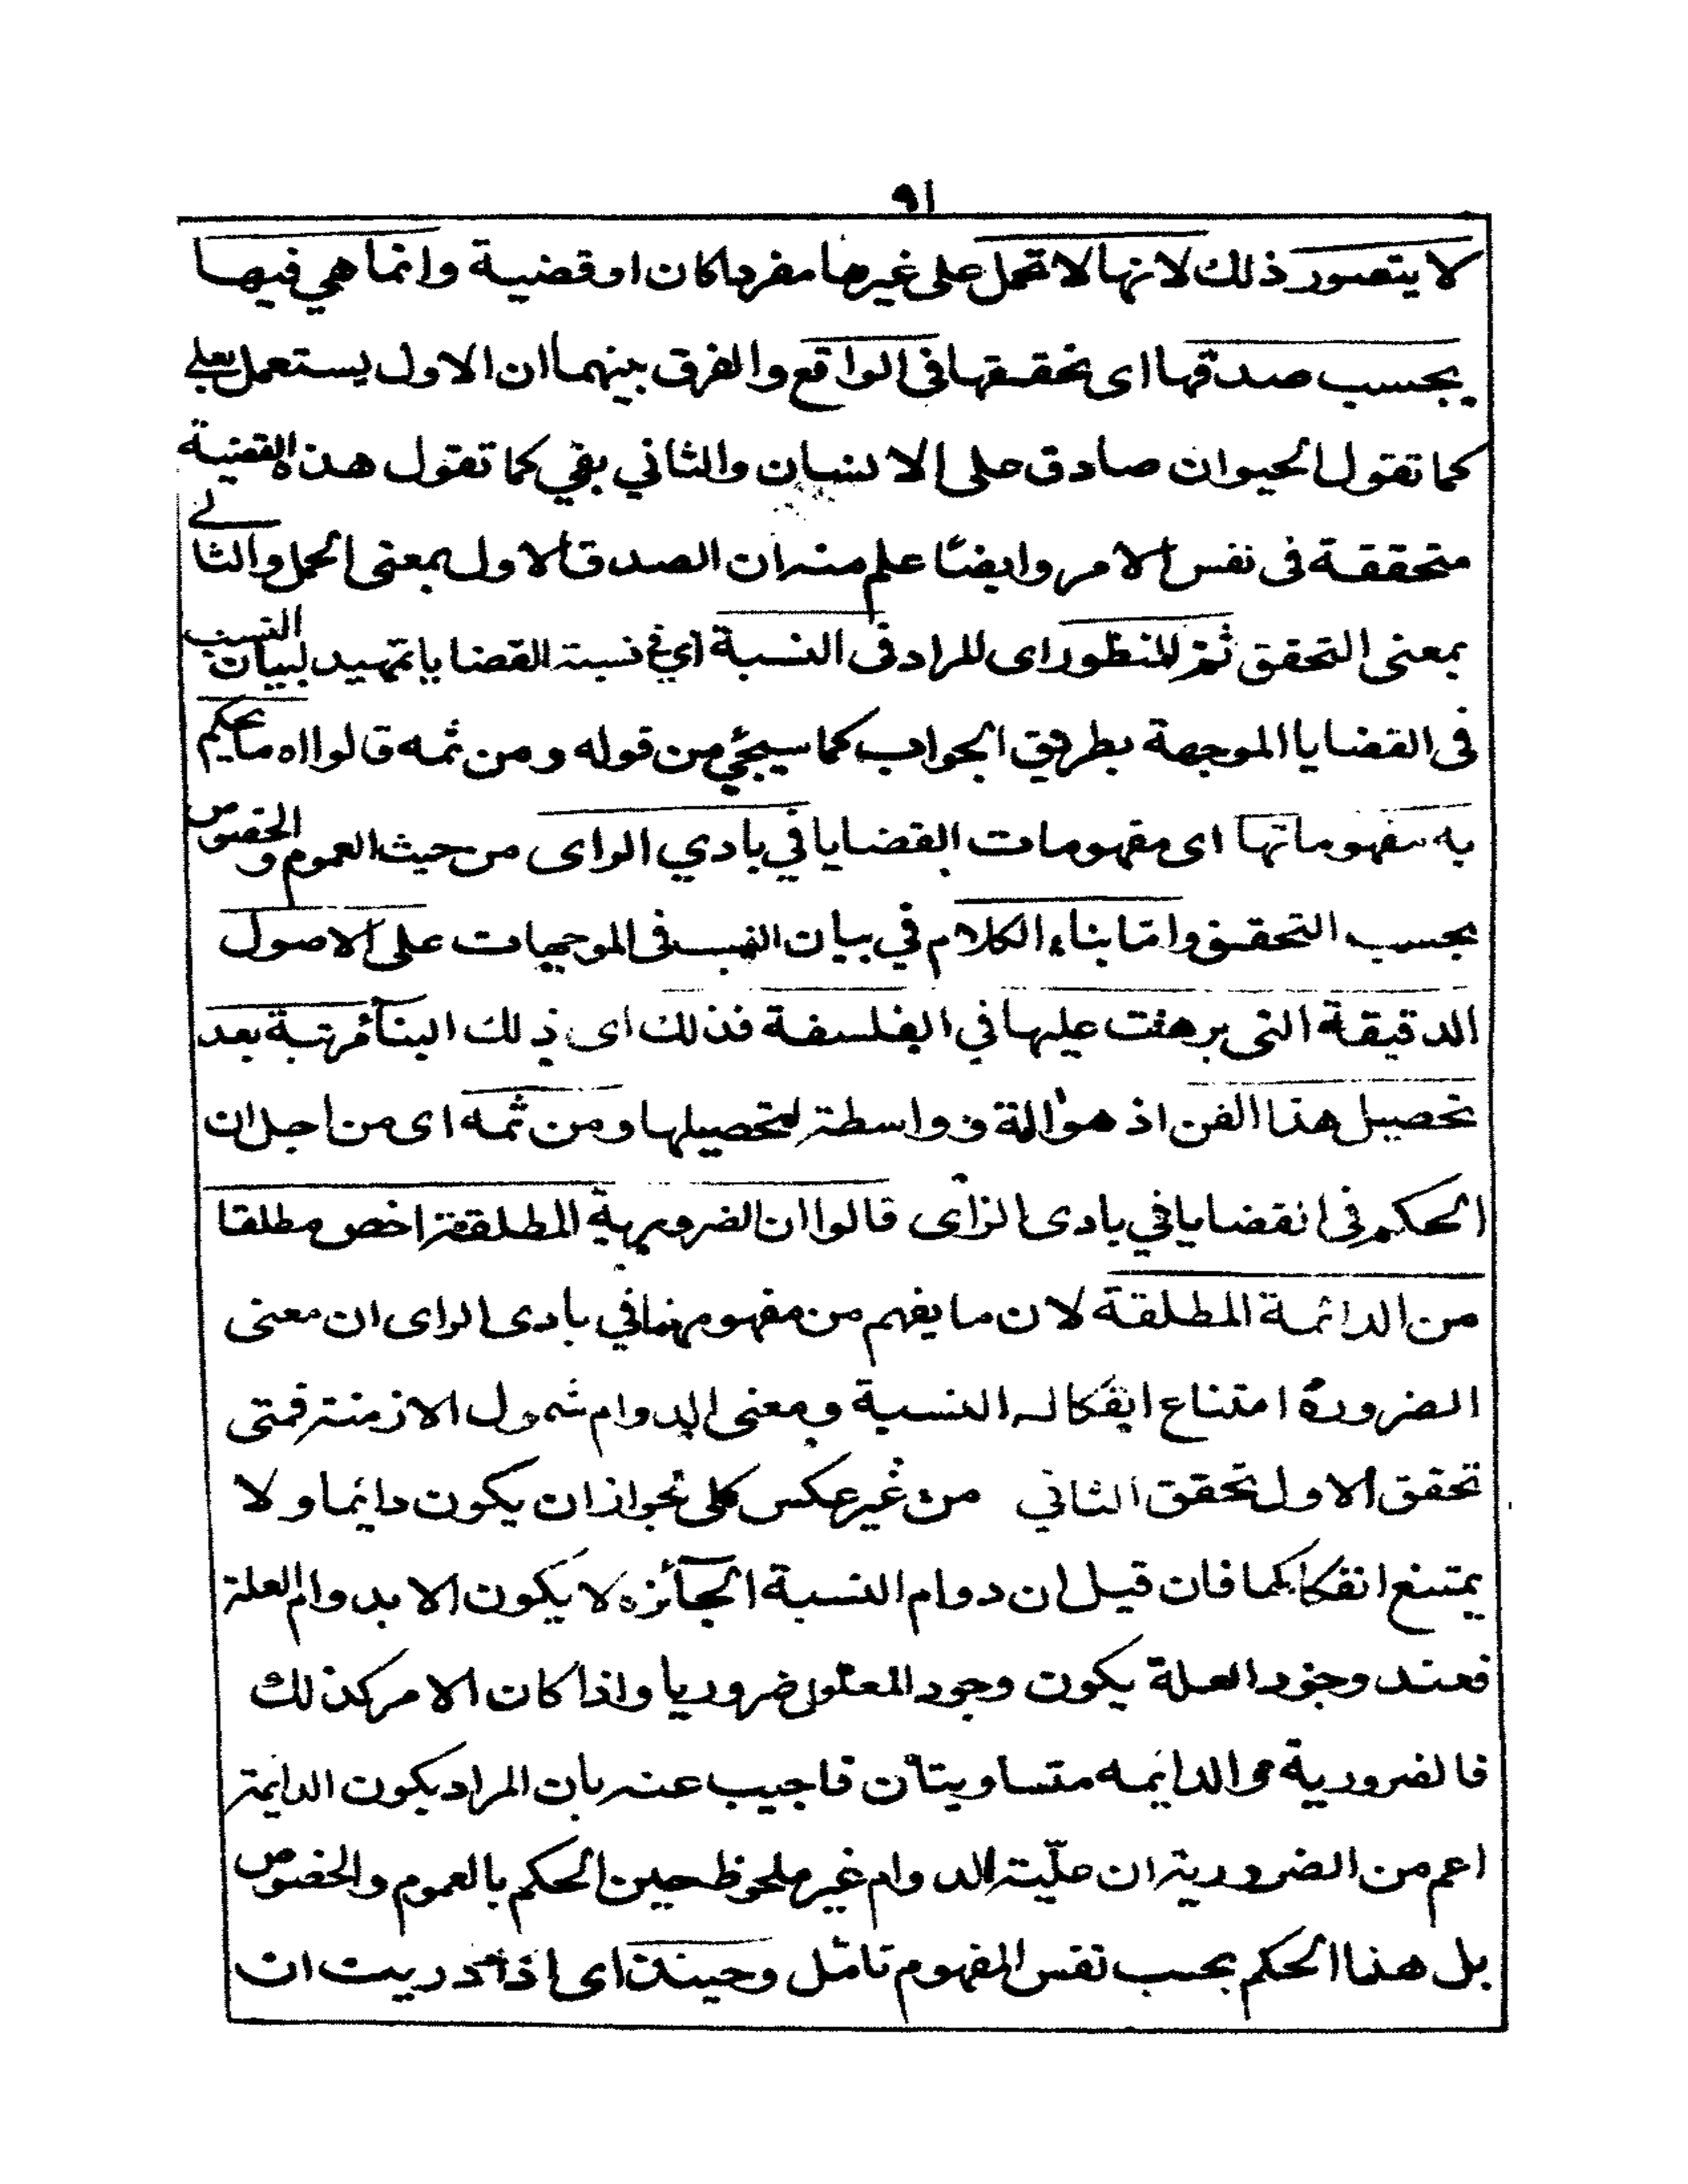 ٩١
لا يتصور ذلك لانها لا تحمل على غيرها مفردا كان او قضية وانما هي فيها
بحسب صدقها اى تحققها فى الواقع والفرق بينهما ان الاول يستعمل بعلى
كما تقول الحيوان صادق على الانسان والثاني بفي كما تقول هذه القضية
متحققة فى نفس الامر وايضا علم منه ان الصدق الاول بمعنى الحمل والثانى
بمعنى التحقق ثم المنظور اى المراد فى النسبة اي فى نسبة القضايا تمهيد لبيان النسب
فى القضايا الموجهة بطريق الجواب كما سيجئ من قوله ومن ثمه قالوا اه ما يحكم
به مفهوماتها اى مفهومات القضايا في بادي الراى من حيث العموم والخصوص
بحسب التحقق واما بناء الكلام في بيان النسب فى الموجهات على الاصول
الدقيقة التى برهنت عليها في الفلسفة فذلك اى ذلك البناء مرتبة بعد
تحصيل هذا الفن اذ هو الة و واسطة لتحصيلها ومن ثمه اى من اجل ان
الحكم فى القضايا في بادى الراى قالوا ان الضرورية المطلقة اخص مطلقا
من الدائمة المطلقة لان ما يفهم من مفهومهما في بادى الراى ان معنى
الضرورة امتناع انفكاك النسبة ومعنى الدوام شمول الازمنة فمتى
تحقق الاول تحقق الثاني من غير عكس كلى لجواز ان يكون دايما ولا
يمتنع انفكاكها فان قيل ان دوام النسبة الجائزه لا يكون الا بدوام العلة
فعند وجود العلة يكون وجود المعلول ضروريا واذا كان الامر كذلك
فالضرورية والدايمه متساويتان فاجيب عنه بان المراد بكون الدايمة
اعم من الضرورية ان علّية الدوام غير ملحوظ حين الحكم بالعموم والخصوص
بل هذا الحكم بحسب نفس المفهوم تامل وحينئذ اى اذا دريت ان